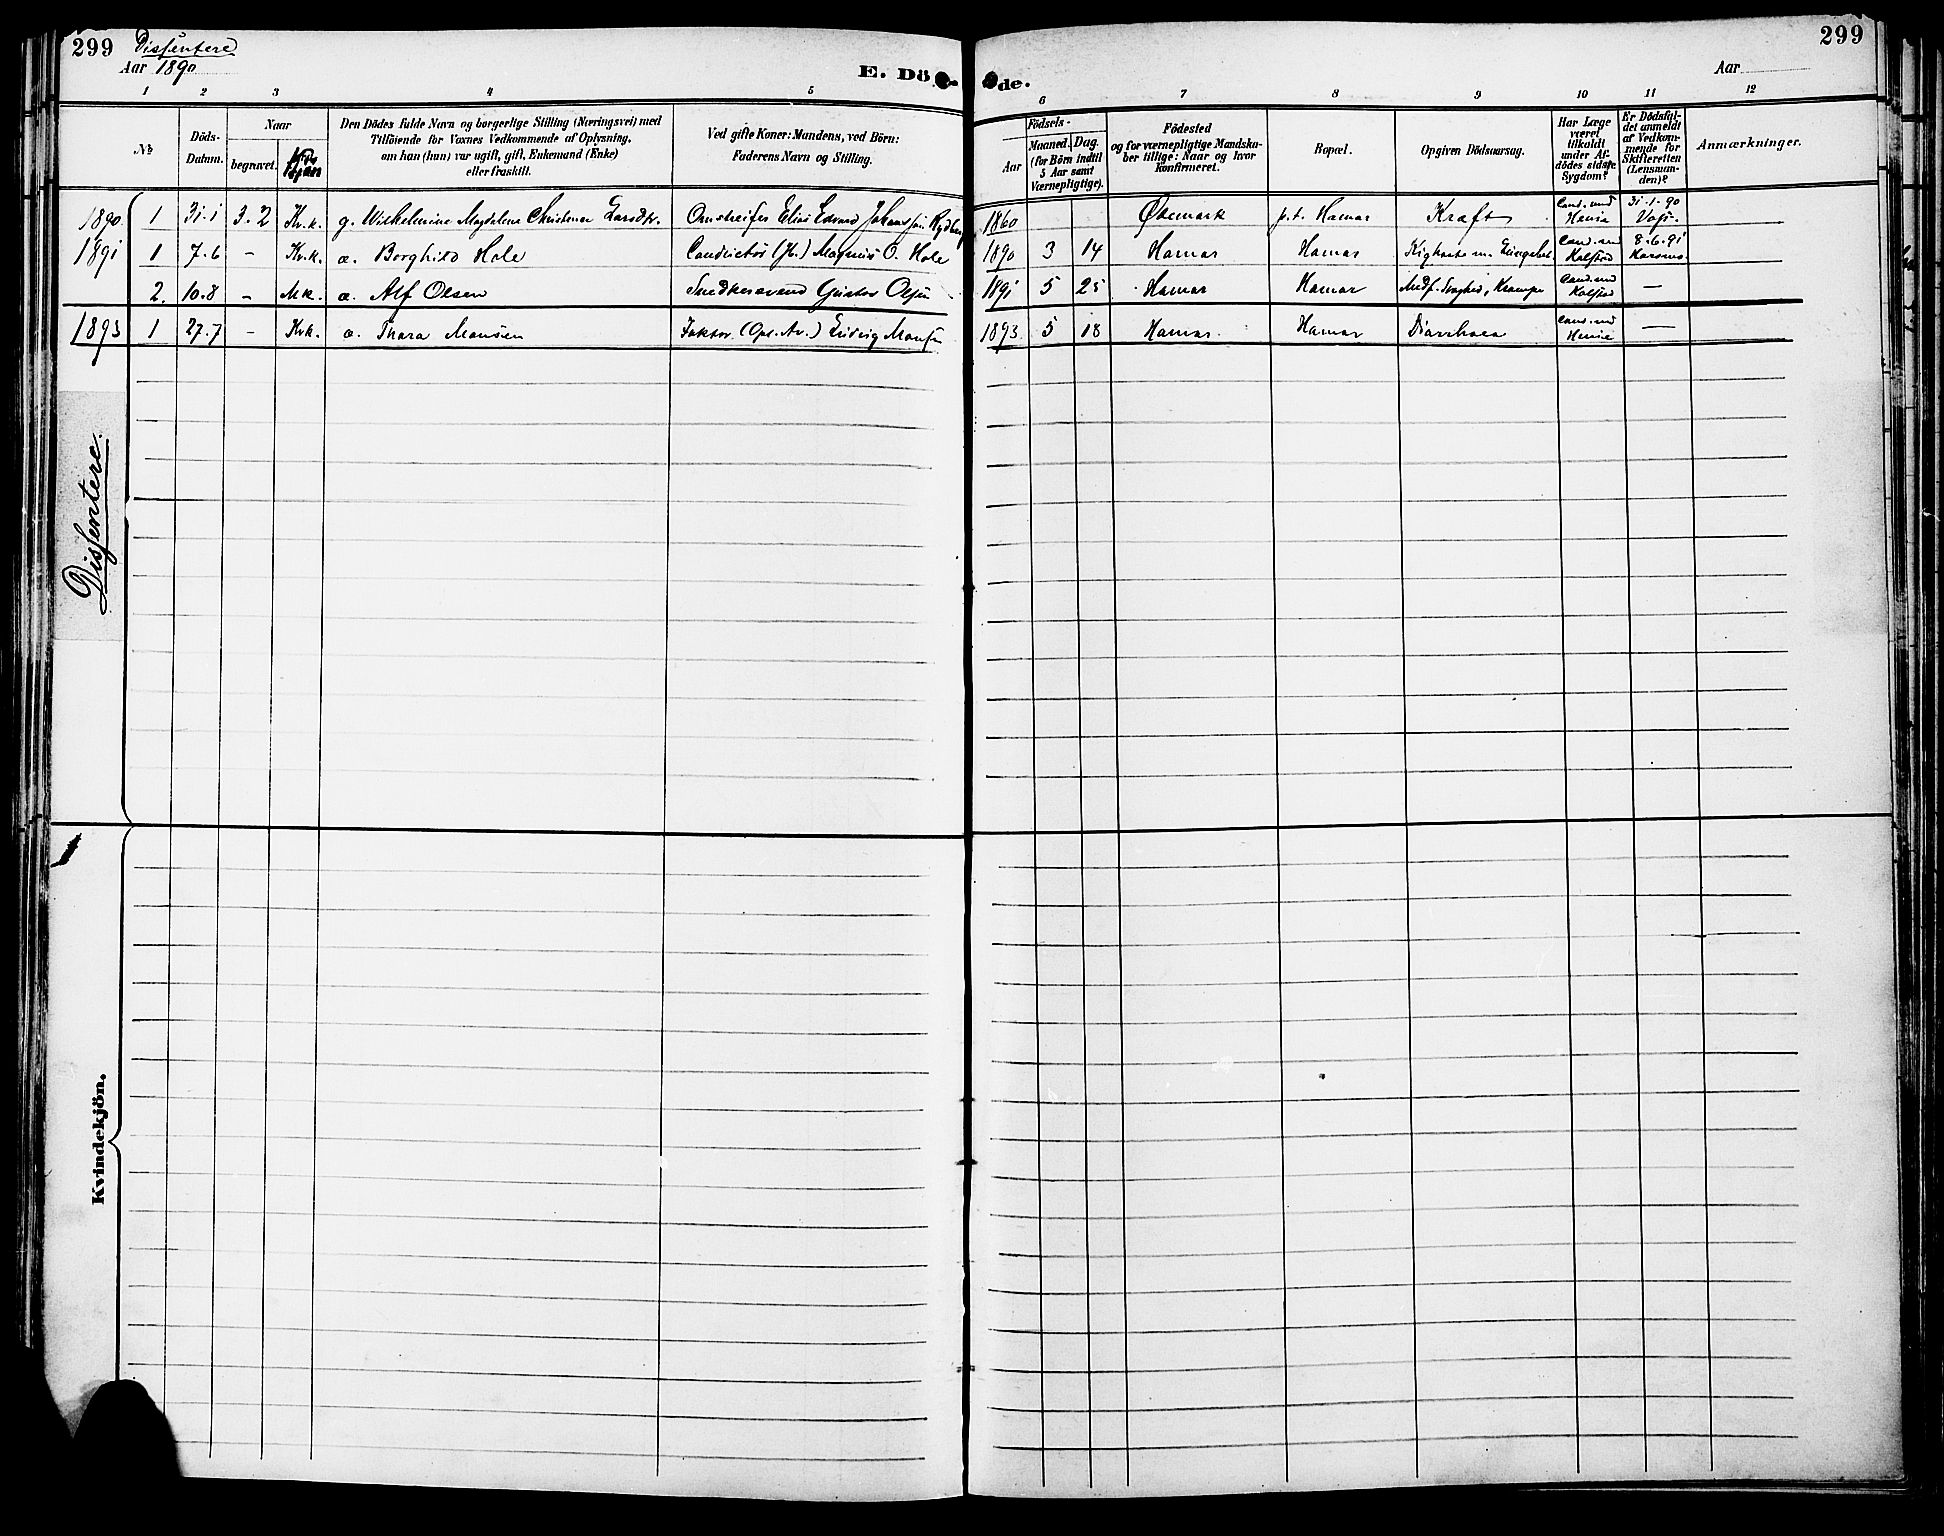 299 Dissentere
Aar 1890
E. Döde.
299
Aar
1 2 3 4 5 6 7 8 9 10 11 12
No
Döds-Datum.
Naar
begravet.
Kjøn
Den Dödes fulde Navn og borgerlige Stilling (Næringsvei) med
Tilföiende for Voxnes Vedkommende af Oplysning,
om han (hun) var ugift, gift, Enkemand (Enke)
eller fraskilt.
Ved gifte Koner: Mandens, ved Börn:
Faderens Navn og Stilling.
Födsels-
Aar
Maaned. Dag.
(for Börn indtil
5 Aar samt
Værnepligtige).
Födested
og for værnepligtige Mandska-
ber tillige: Naar og hvor
konfirmeret.
Bopæl.
Opgiven Dödsaarsag.
Har Læge
været
tilkaldt
under Af-
dödes sidste
Sygdom?
Er Dödsfal-
det anmeldt
af Vedkom-
mende for
Skifteretten
(Lensman-
den)?
Anmærkninger.
1890 1 31.1 3.2 Kv.k. g. Wilhelmine Magdalene Christense Larsdtr. Omstreifer Elias Edvard Johanssøn Rydberg 1860 Ødemark p.t. Hamar Kræft Cand. med 31-1-90
1891 1 7.6 - Kv.k. æ. Borghild Hole Conductør (Jb.) Magnus O. Hole 1890 3 14 Hamar Hamar Kighoste m. Cand. med Kolstad 8.6.91
2. 10.8 - Mk. æ. Alf Olsen Snedkersvend Gustav Olsen 1891 5 25 Hamar Hamar Medf. Svaghed, Krampe Cand. med Kolstad —
1893 1 27.7 - Kvk. æ. Thora Monsen Faktor (Opl. Av.) Ludvig Monsen 1893 5 18 Hamar Hamar Diarrhoea Cand. med —
Dissentere.
Kvindekjön.